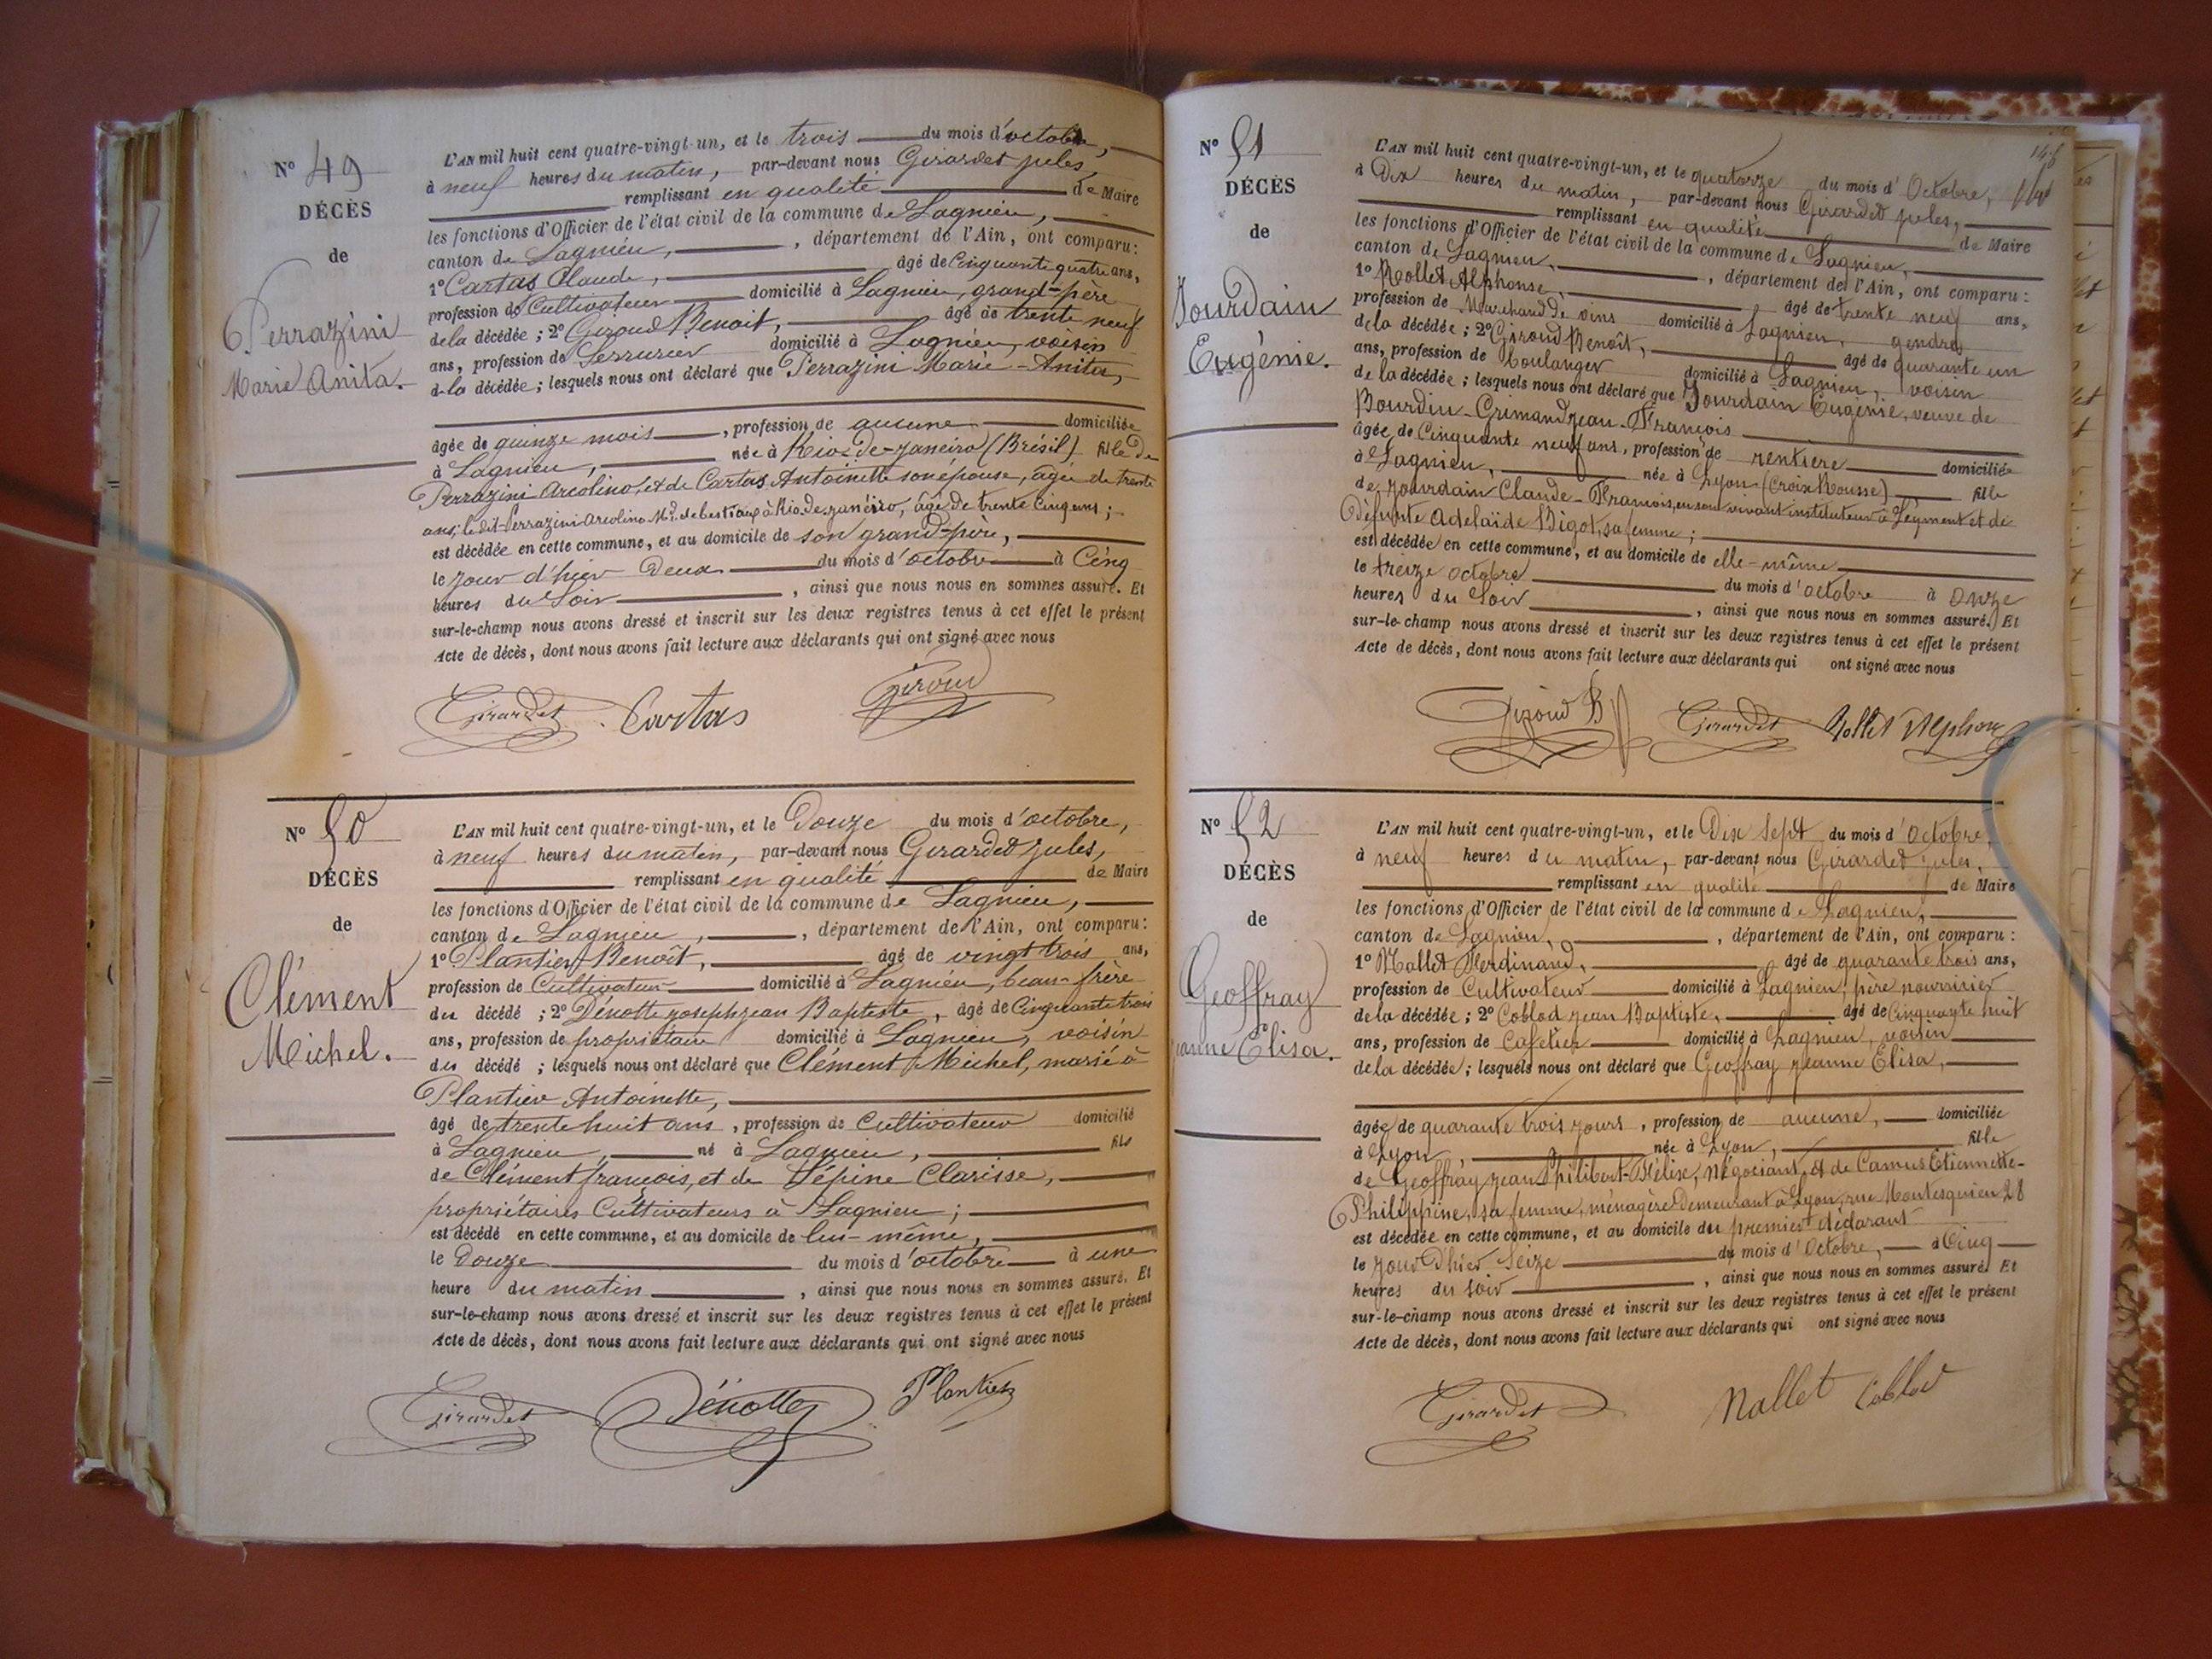 N° 49
DÉCÈS
de
Perrazini
Marie Anita.
L'AN mil huit cent quatre-vingt-un, et le trois du mois d'octobre,
à neuf heures du matin, par-devant nous Girardet jules,
remplissant en qualité de Maire
les fonctions d'Officier de l'état civil de la commune de Lagnieu,
canton de Lagnieu, , département de l'Ain, ont comparu:
1° Cartas Claude, âgé de Cinquante quatre ans,
profession de Cultivateur domicilié à Lagnieu, grand-père
de la décédée ; 2° Giroud Benoit, âgé de trente neuf
ans, profession de Serrurier domicilié à Lagnieu, voisin
de la décédée ; lesquels nous ont déclaré que Perrazini Marie-Anita,
âgée de quinze mois , profession de aucune domiciliée
à Lagnieu, née à Rio-de-janeiro (Brésil) fille de
Perrazini Arcolino, et de Cartas Antoinette son épouse, âgée de trente
ans; le dit Perrazini Arcolino Md. de bestiaux à Rio-de-janéiro, âgé de trente Cinq ans ;
est décédée en cette commune, et au domicile de son grand-père,
le jour d'hier Deux du mois d'octobre à Cinq
heures du Soir , ainsi que nous nous en sommes assuré. Et
sur-le-champ nous avons dressé et inscrit sur les deux registres tenus à cet effet le présent
Acte de décès, dont nous avons fait lecture aux déclarants qui ont signé avec nous
Girardet Cartas Giroud
N° 50
DÉCÈS
de
Clément
Michel.
L'AN mil huit cent quatre-vingt-un, et le Douze du mois d'octobre,
à neuf heures du matin, par-devant nous Girardet jules,
remplissant en qualité de Maire
les fonctions d'Officier de l'état civil de la commune de Lagnieu,
canton de Lagnieu , département de l'Ain, ont comparu:
1° Plantier Benoît, âgé de vingt trois ans,
profession de Cultivateur domicilié à Lagnieu, beau-frère
du décédé ; 2° Dénotte joseph jean Baptiste, âgé de Cinquante trois
ans, profession de propriétaire domicilié à Lagnieu, voisin
du décédé ; lesquels nous ont déclaré que Clément Michel, marié à
Plantier Antoinette,
âgé de trente huit ans , profession de Cultivateur domicilié
à Lagnieu , né à Lagnieu, fils
de Clément françois, et de Lépine Clarisse,
propriétaires Cultivateurs à Lagnieu ;
est décédé en cette commune, et au domicile de lui-même,
le Douze du mois d'octobre à une
heure du matin , ainsi que nous nous en sommes assuré. Et
sur-le-champ nous avons dressé et inscrit sur les deux registres tenus à cet effet le présent
Acte de décès, dont nous avons fait lecture aux déclarants qui ont signé avec nous
Girardet Dénotte Plantier
N° 51
DÉCÈS
de
Jourdain
Eugénie.
L'AN mil huit cent quatre-vingt-un, et le quatorze du mois d'Octobre,
à Dix heures du matin, par-devant nous Girardet jules,
remplissant en qualité de Maire
les fonctions d'Officier de l'état civil de la commune de Lagnieu,
canton de Lagnieu, , département de l'Ain, ont comparu :
1° Rollet Alphonse, âgé de trente neuf ans,
profession de Marchand de vins domicilié à Lagnieu, gendre
de la décédée ; 2° Giroud Benoît, âgé de quarante un
ans, profession de boulanger domicilié à Lagnieu, voisin
de la décédée ; lesquels nous ont déclaré que Jourdain Eugénie, veuve de
Bourdin-Grimand jean-François
âgée de Cinquante neuf ans, profession de rentière domiciliée
à Lagnieu, née à Lyon (Croix Rousse) fille
de Jourdain Claude-François, en son vivant instituteur à Leyment et de
Défunte Adelaïde Bigot, sa femme ;
est décédée en cette commune, et au domicile de elle-même
le treize octobre du mois d'octobre à Onze
heures du Soir , ainsi que nous nous en sommes assuré. Et
sur-le-champ nous avons dressé et inscrit sur les deux registres tenus à cet effet le présent
Acte de décès, dont nous avons fait lecture aux déclarants qui ont signé avec nous
Giroud B Girardet Rollet Alphonse
N° 52
DÉCÈS
de
Geoffray
Jeanne Élisa.
L'AN mil huit cent quatre-vingt-un, et le Dix Sept du mois d'Octobre,
à neuf heures du matin, par-devant nous Girardet jules,
remplissant en qualité de Maire
les fonctions d'Officier de l'état civil de la commune de Lagnieu,
canton de Lagnieu, , département de l'Ain, ont comparu :
1° Nallet Ferdinand, âgé de quarante trois ans,
profession de Cultivateur domicilié à Lagnieu, père nourricier
de la décédée ; 2° Coblod jean Baptiste, âgé de Cinquante huit
ans, profession de Cafetier domicilié à Lagnieu, voisin
de la décédée ; lesquels nous ont déclaré que Geoffray jeanne Élisa,
âgée de quarante trois jours , profession de aucune, domiciliée
à Lyon , née à Lyon , fille
de Geoffray jean Philibert-Félix, Négociant, et de Camus Etiennette-
Philippine, sa femme, ménagère demeurant à Lyon, rue Montesquieu 28
est décédée en cette commune, et au domicile du premier déclarant
le jour d'hier Seize du mois d'Octobre, à Cinq
heures du soir , ainsi que nous nous en sommes assuré. Et
sur-le-champ nous avons dressé et inscrit sur les deux registres tenus à cet effet le présent
Acte de décès, dont nous avons fait lecture aux déclarants qui ont signé avec nous
Girardet Nallet Coblod